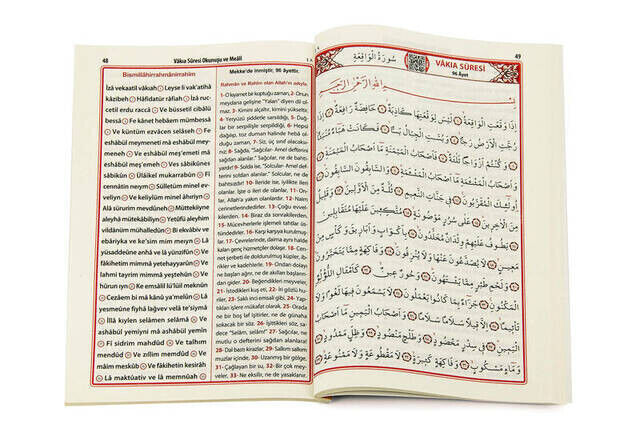 48
Vâkıa Sûresi Okunuşu ve Meâli
Bismillâhirrahmânirrahîm
İzâ vekaatil vâkıah Leyse li vak'atihâ
kâzibeh Hâfidatür râfiah İzâ ruc-
cetil erdu raccâ Ve büssetil cibâlü
bessâ Fe kânet hebâem mümbessâ
Ve küntüm ezvâcen selâseh Fe
eshâbül meymeneti mâ eshâbül mey-
meneh Ve eshâbül meş'emeti mâ
eshâbül meş'emeh Ves sâbikûnes
sâbikûn Ülâikel mukarrabûn Fî
cennâtin neıym Sülletüm minel ev-
velîyn Ve kelîylüm minel âhırîyn
Alâ sürurim mevdûneh Müttekiîyne
aleyhâ mütekâbilîyn Yetûfü aleyhim
vildânüm mühalledûn Bi ekvâbiv ve
ebâriyka ve ke'sim mim meıyn Lâ
yüsaddeûne anhâ ve lâ yünzifûn
Ve fâkihetim mimmâ yetehayyerûn Ve
lahmi tayrim mimmâ yeştehûn Ve
hûrun ıyn Ke emsâlil lü'lüil meknûn
Cezâem bi mâ kânû ya'melûn Lâ
yesmeûne fîyhâ lağvev velâ te'sîymâ
İllâ kıylen selâmen selâmâ Ve
ashâbül yemîyni mâ ashâbül yemîn
Fî sidrim mahdûd Ve talhım
mendûd Ve zıllim memdûd Ve
mâim meskûb Ve fâkihetin kesîrah
Lâ maktûativ ve lâ memnûah
Mekke'de inmiştir, 96 âyettir.
Rahmân ve Rahîm olan Allah'ın adıyla.
1- O kıyamet bir koptuğu zaman, 2- Onun
meydana gelişine "Yalan" diyen dil ol-
maz. 3- Kimini alçaltır, kimini yükseltir.
4- Yeryüzü şiddetle sarsıldığı, 5- Dağ-
lar bir serpilişle serpildiği, 6- Hepsi
dağılıp, toz duman halinde hebâ ol-
duğu zaman. 7- Siz, üç sınıf olacaksı-
nız. 8- Sağda, "Sağcılar- Amel defterini
sağdan alanlar." Sağcılar, ne de bahti-
yardır! 9- Solda ise, "Solcular- Amel def-
terini soldan alanlar." Solcular, ne de
bahtsızdır! 10- İleride ise, iyilikte ileri
olanlar. İşte o ileri de olanlar. 11- On-
lar, Allah'a yakın olanlardır. 12- Naîm
cennetlerindedirler. 13- Çoğu evvel-
kilerden, 14- Biraz da sonrakilerden.
15- Mücevherlerle işlemeli tahtlar üs-
tündedirler. 16- Karşı karşıya kurulmuş-
lar. 17- Çevrelerinde, daima aynı halde
kalan genç hizmetçiler dolaşır. 18- Cen-
net şerbeti ile doldurulmuş küpler, ib-
rikler ve kadehlerle. 19- Ondan dolayı
ne başları ağrır, ne de akılları başların-
dan gider. 20- Beğendikleri meyveler,
21- İstedikleri kuş eti, 22- İri gözlü hu-
rîler, 23- Saklı inci emsali gibi, 24- Yap-
tıkları işlere mükafat olarak. 25- Orada
ne bir boş laf işitirler, ne de günaha
sokacak bir söz. 26- İşittikleri söz, sa-
dece "Selâm, selâm!" 27- Sağcılar, ne
mutlu o defterini sağdan alanlara!
28- Dal bastı kirazlar, 29- Salkım salkım
muzlar içinde, 30- Uzanmış bir gölge,
31- Çağlayan bir su, 32- Bir çok mey-
veler, 33- Ne eksilir, ne de yasaklanır.
49
سُورَةُ الْوَاقِعَةِ
VÂKIA SÛRESİ
96 Âyet
بِسْمِ اللهِ الرَّحْمٰنِ الرَّحِيمِ
اِذَا وَقَعَتِ الْوَاقِعَةُ لَيْسَ لِوَقْعَتِهَا كَاذِبَةٌ خَافِضَةٌ رَافِعَةٌ اِذَا
رُجَّتِ الْاَرْضُ رَجًّا وَبُسَّتِ الْجِبَالُ بَسًّا فَكَانَتْ هَبَاءً مُنْبَثًّا
وَكُنْتُمْ اَزْوَاجًا ثَلٰثَةً فَاَصْحَابُ الْمَيْمَنَةِ مَا اَصْحَابُ الْمَيْمَنَةِ
وَاَصْحَابُ الْمَشْـَٔمَةِ مَا اَصْحَابُ الْمَشْـَٔمَةِ وَالسَّابِقُونَ السَّابِقُونَ
اُولٰئِكَ الْمُقَرَّبُونَ فِي جَنَّاتِ النَّعِيمِ ثُلَّةٌ مِنَ الْاَوَّلِينَ وَقَلِيلٌ
مِنَ الْاٰخِرِينَ عَلٰى سُرُرٍ مَوْضُونَةٍ مُتَّكِـِٔينَ عَلَيْهَا مُتَقَابِلِينَ
يَطُوفُ عَلَيْهِمْ وِلْدَانٌ مُخَلَّدُونَ بِاَكْوَابٍ وَاَبَارِيقَ وَكَأْسٍ مِنْ
مَعِينٍ لَا يُصَدَّعُونَ عَنْهَا وَلَا يُنْزِفُونَ وَفَاكِهَةٍ مِمَّا يَتَخَيَّرُونَ
وَلَحْمِ طَيْرٍ مِمَّا يَشْتَهُونَ وَحُورٌ عِينٌ كَاَمْثَالِ اللُّؤْلُؤِ
الْمَكْنُونِ جَزَاءً بِمَا كَانُوا يَعْمَلُونَ لَا يَسْمَعُونَ فِيهَا لَغْوًا وَلَا
تَأْثِيمًا اِلَّا قِيلًا سَلَامًا سَلَامًا وَاَصْحَابُ الْيَمِينِ مَا اَصْحَابُ
الْيَمِينِ فِي سِدْرٍ مَخْضُودٍ وَطَلْحٍ مَنْضُودٍ وَظِلٍّ مَمْدُودٍ
وَمَاءٍ مَسْكُوبٍ وَفَاكِهَةٍ كَثِيرَةٍ لَا مَقْطُوعَةٍ وَلَا مَمْنُوعَةٍ